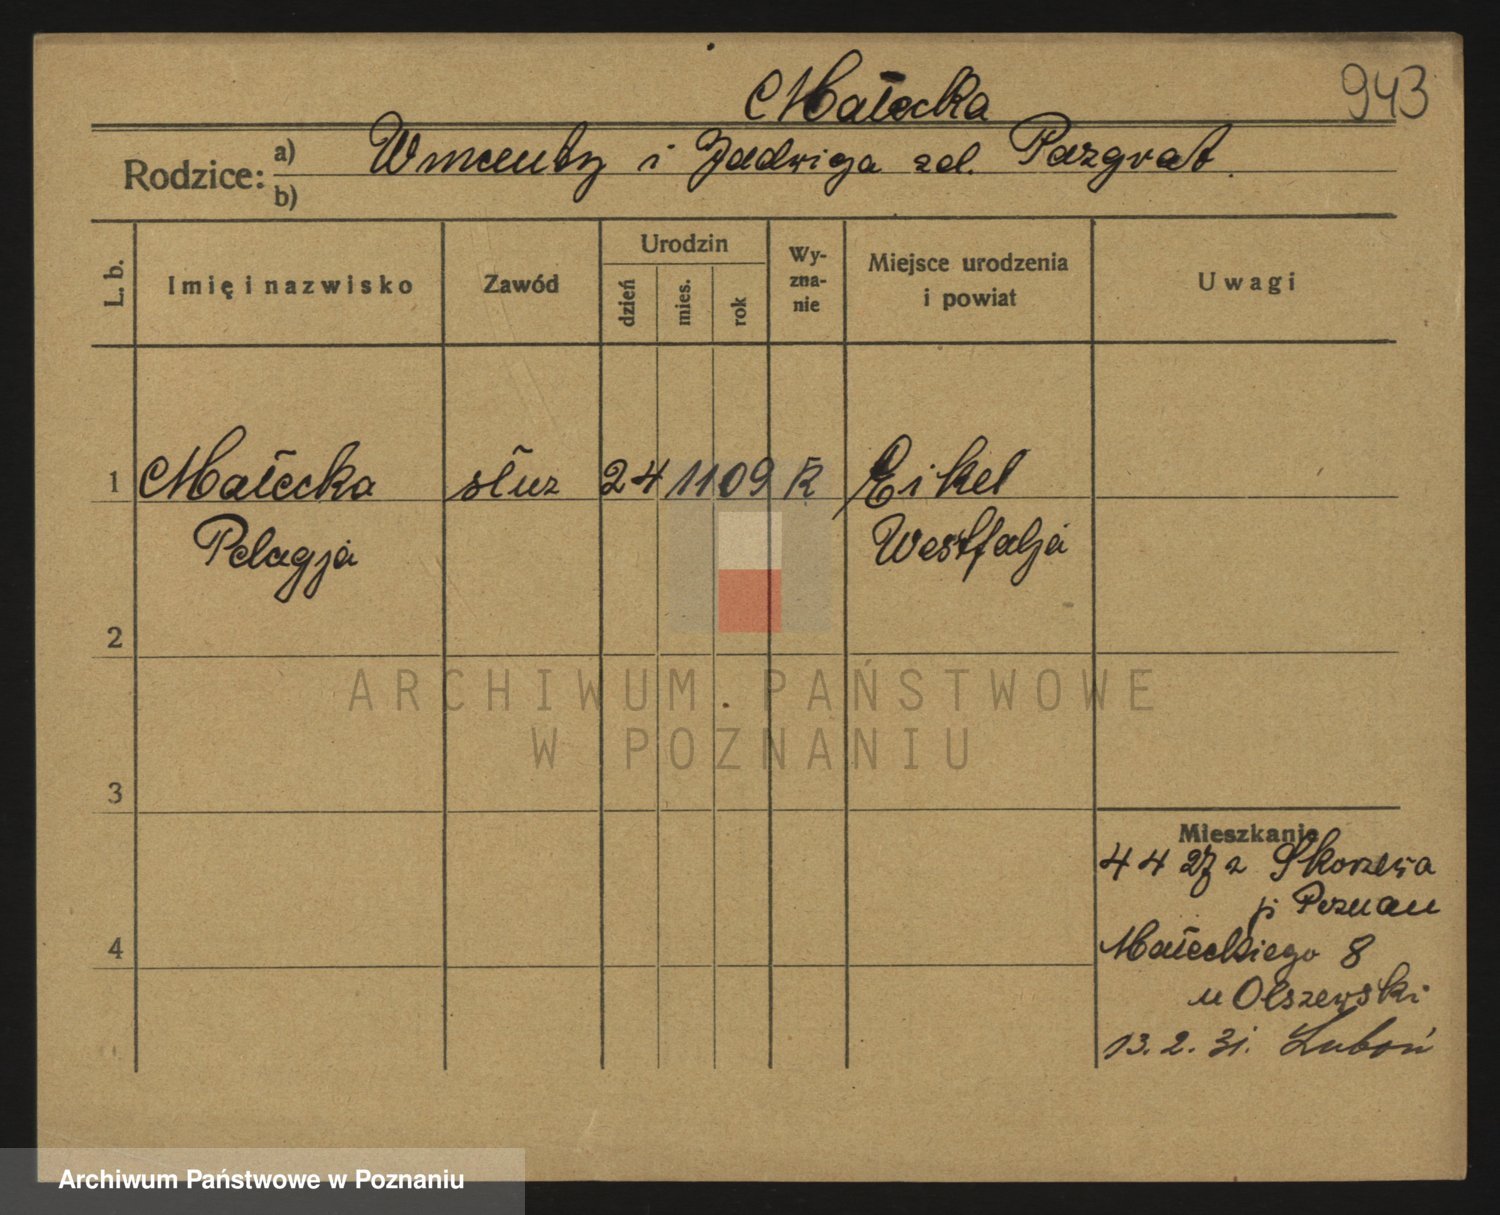 Małecka
943
Rodzice: a) Wincenty i Jadwiga zd. Pazgrat.
b)
L. b.
Imię i nazwisko
Zawód
Urodzin
dzień
mies.
rok
Wy-
zna-
nie
Miejsce urodzenia
i powiat
Uwagi
1 Małecka służ 24 11 09 K Eikel
Pelagja Westfalja
2
ARCHIWUM PAŃSTWOWE
W POZNANIU
3
Mieszkanie
4 4 27 z Skorzewa
p Poznan
4
Małeckiego 8
u Olszewski
13. 2. 31. Luboń
Archiwum Państwowe w Poznaniu